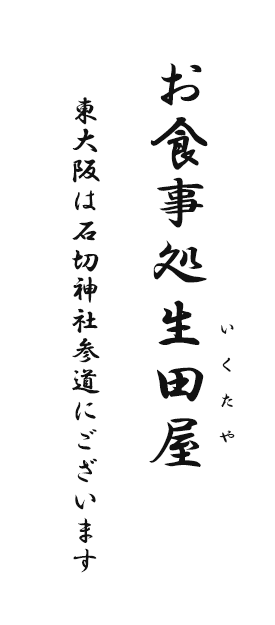 お食事処生田屋
いくたや
東大阪は石切神社参道にございます